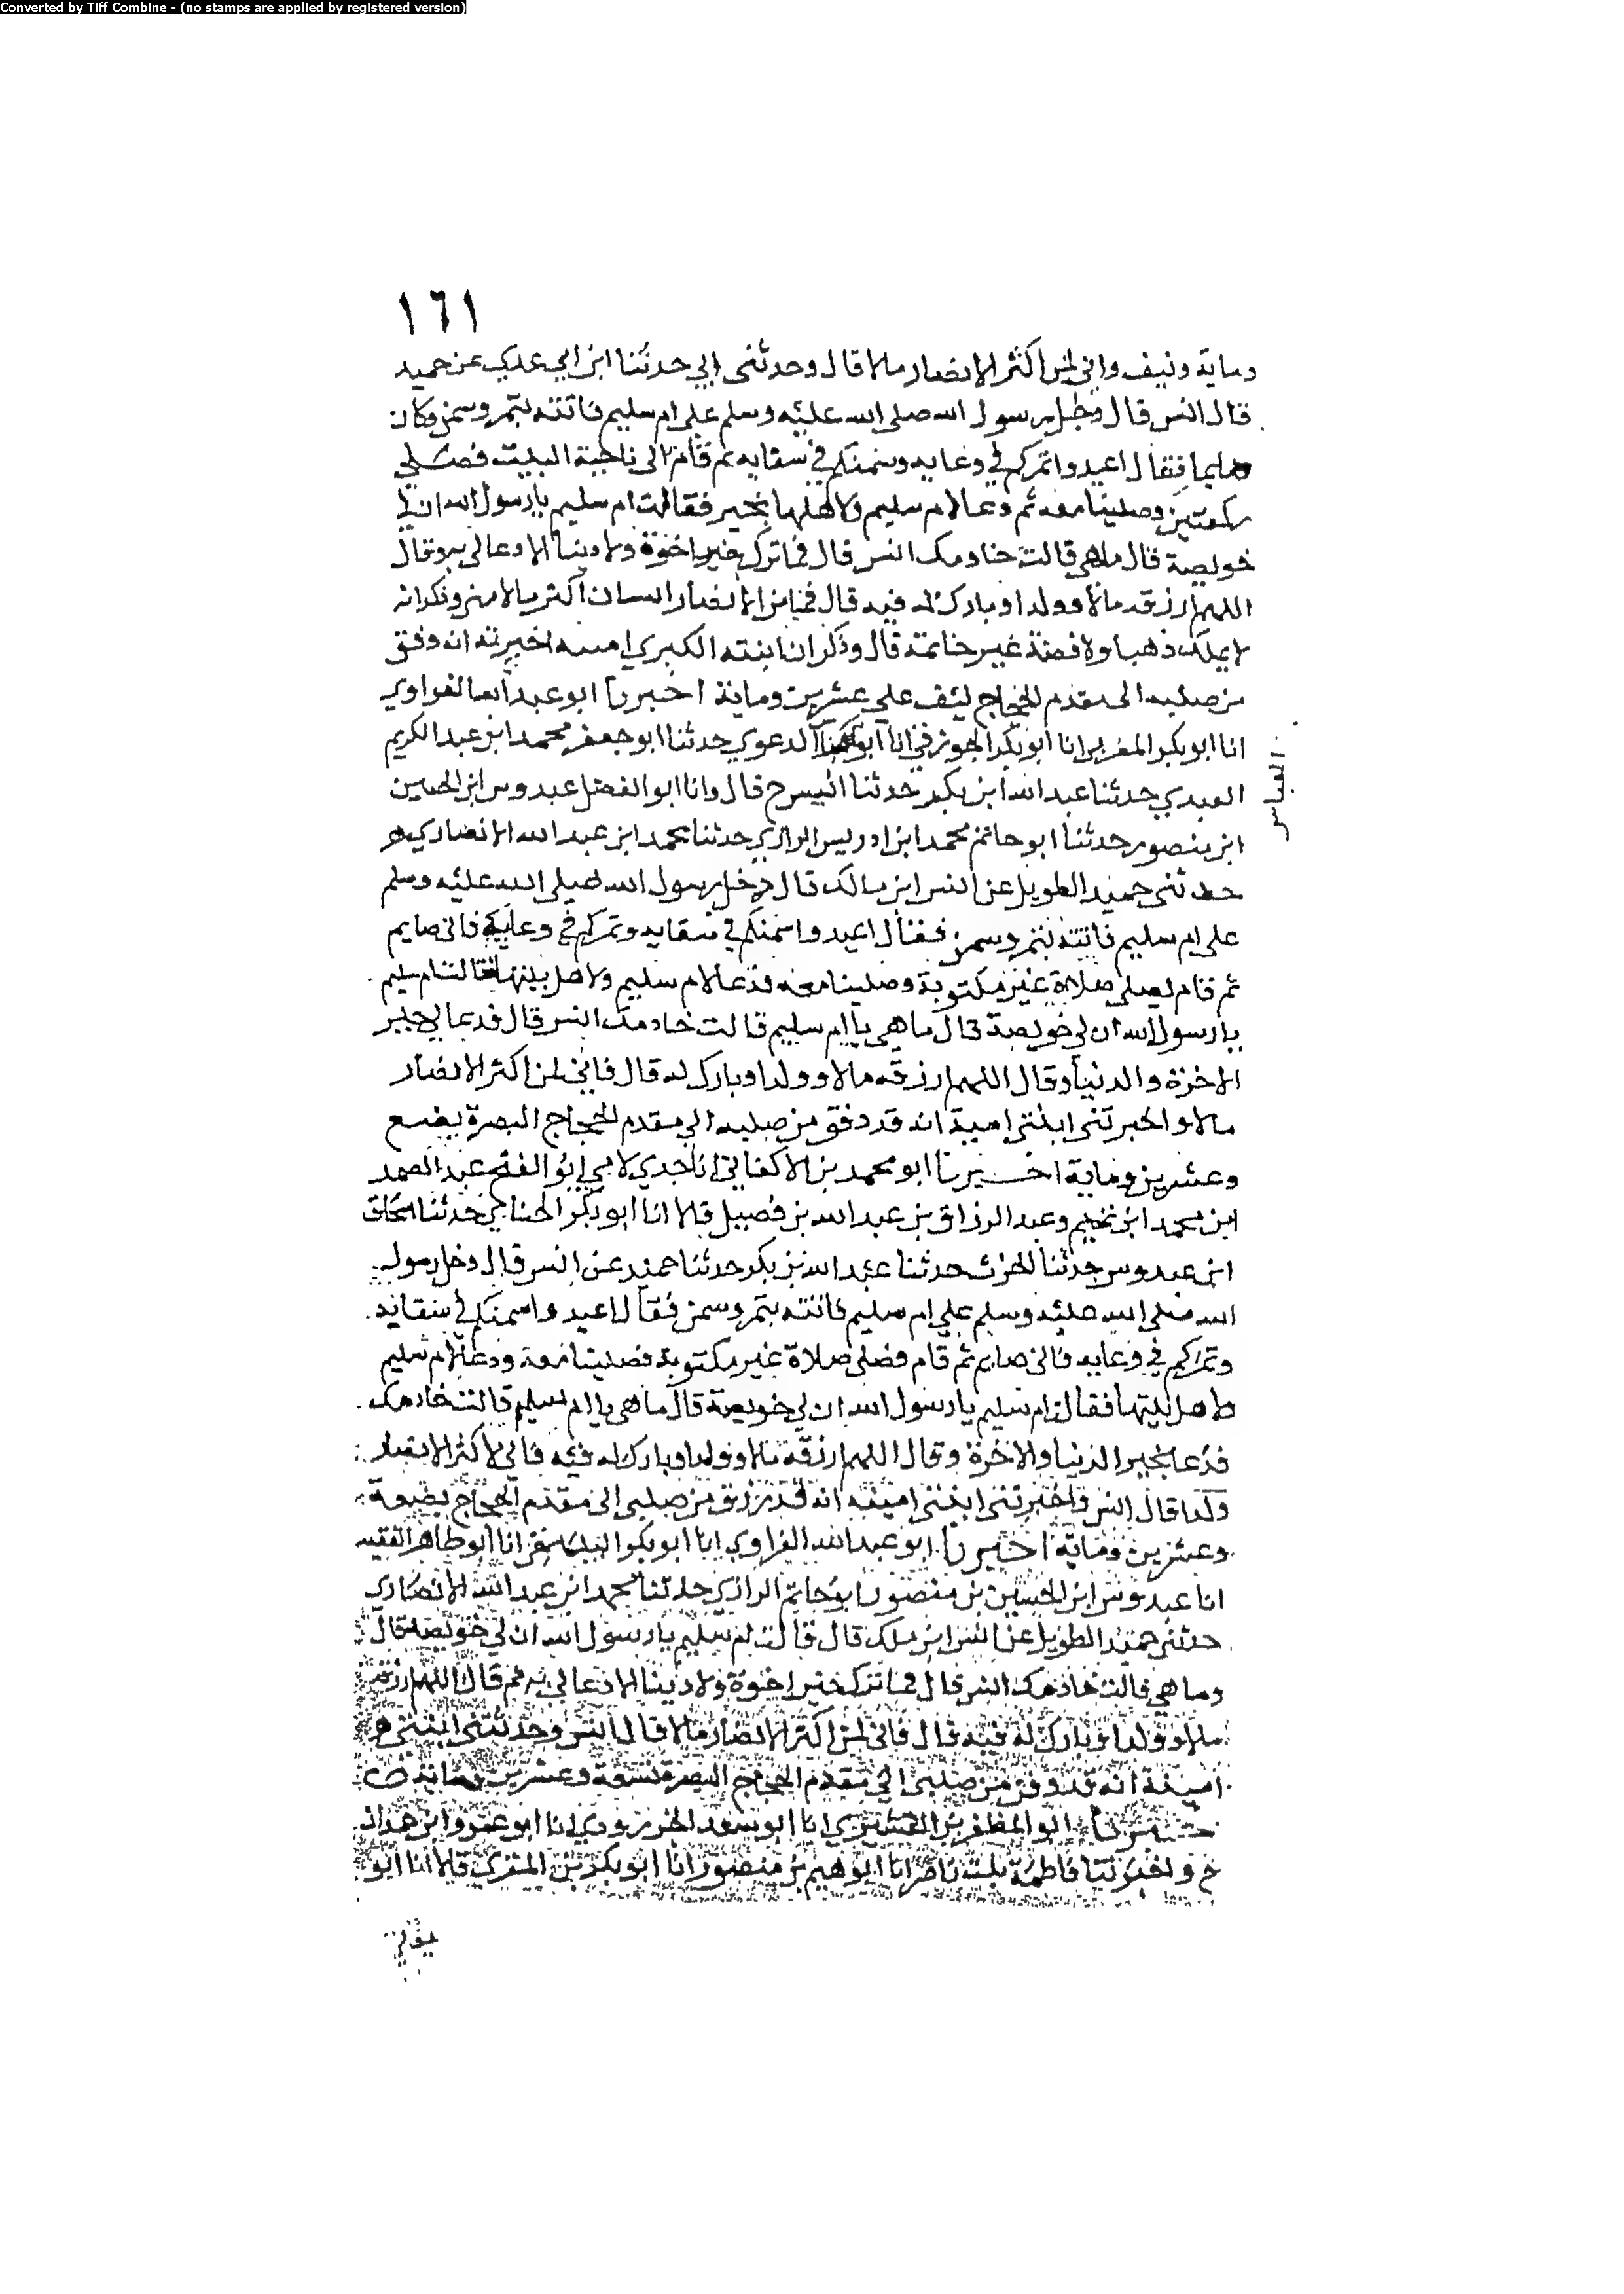 Converted by Tiff Combine - (no stamps are applied by registered version)
١٦١
وماية ونيف واني لمن اكثر الانصار مالا قال وحدثني ابي حدثنا ابن ابي عدي عن حميد
قال انس قال دخل رسول الله صلى الله عليه وسلم على ام سليم فاتته بتمر وسمن وكان
صايما فقال اعيدوا تمركم في وعايه وسمنكم في سقايه ثم قام الى ناحية البيت فصلى
ركعتين وصلينا معه ثم دعا لام سليم ولاهلها بخير فقالت ام سليم يا رسول الله ان لي
خويصة قال ما هي قالت خادمك انس قال فما ترك خير اخرة ولا دنيا الا دعا لي به وقال
اللهم ارزقه مالا وولدا وبارك له فيه قال فما من الانصار انسان اكثر مالا مني وذكر انه
لا يملك ذهبا ولا فضة غير خاتمه قال وذكر ان ابنته الكبرى امينه اخبرته انه دفن
من صلبه الى مقدم الحجاج نيف على عشرين وماية اخبرنا ابو عبد الله الفراوي
انا ابو بكر المغربي انا ابو بكر الجوزقي انا ابو الدعوي حدثنا ابو جعفر محمد ابن عبد الكريم
العباس
العبدي حدثنا عبد الله ابن بكر حدثنا قال وانا ابو الفضل عبدوس ابن الحسين
ابن منصور حدثنا ابو حاتم محمد ابن ادريس الرازي حدثنا محمد ابن عبد الله الانصاري
حدثني حميد الطويل عن انس ابن مالك قال دخل رسول الله صلى الله عليه وسلم
على ام سليم فاتته بتمر وسمن فقال اعيدوا سمنكم في سقايه وتمركم في وعايه فاني صايم
ثم قام يصلي صلاة غير مكتوبة وصلينا معه فدعا لام سليم ولاهل بيتها فقالت ام سليم
يا رسول الله ان لي خويصة قال ما هي يا ام سليم قالت خادمك انس قال فدعا لي بخير
الاخرة والدنيا وقال اللهم ارزقه مالا وولدا وبارك له قال فاني لمن اكثر الانصار
مالا واخبرتني ابنتي امينة انه قد دفن من صلبه الى مقدم الحجاج البصرة بضع
وعشرين وماية اخبرنا ابو محمد بن الاكفاني انا جدي لامي ابو الفتح عبد الصمد
ابن محمد ابن تميم وعبد الرزاق بن عبد الله بن فضيل قالا انا ابو بكر الحنائي حدثنا اسحاق
ابن عبدوس حدثنا الحرث حدثنا عبد الله بن بكر حدثنا حميد عن انس قال دخل رسول
الله صلى الله عليه وسلم على ام سليم فاتته بتمر وسمن فقال اعيدوا سمنكم في سقايه
وتمركم في وعايه فاني صايم ثم قام فصلى صلاة غير مكتوبة فصلينا معه ودعا لام سليم
ولاهل بيتها فقالت ام سليم يا رسول الله ان لي خويصة قال ما هي يا ام سليم قالت خادمك
فدعا بخير الدنيا والاخرة وقال اللهم ارزقه مالا وولدا وبارك له فيه فاني لاكثر الانصار
ولدا قال انس واخبرتني ابنتي امينه انه قد رزق من صلبي الى مقدم الحجاج بضعة
وعشرين وماية اخبرنا ابو عبد الله الفراوي انا ابو بكر البيهقي انا ابو طاهر الفقيه
انا عبدوس ابن الحسين بن منصور ابو حاتم الرازي حدثنا محمد ابن عبد الله الانصاري
حدثني حميد الطويل عن انس ابن ملك قال قالت ام سليم يا رسول الله ان لي خويصة قال
وما هي قالت خادمك انس قال فما ترك خير اخرة ولا دنيا الا دعا لي به ثم قال اللهم ارزقه
مالا وولدا وبارك له فيه قال فاني لمن اكثر الانصار مالا قال انس وحدثتني ابنتي
امينة انه قد دفن من صلبي الى مقدم الحجاج البصرة تسعة وعشرين وماية
ابو المظفر بن القشيري انا ابو سعد الجنزرودي انا ابو عمرو ابن حمدان
ح واخبرتنا فاطمة بنت ناصر انا ابراهيم بن منصور انا ابو بكر بن المقري قالا انا ابو
يعلى